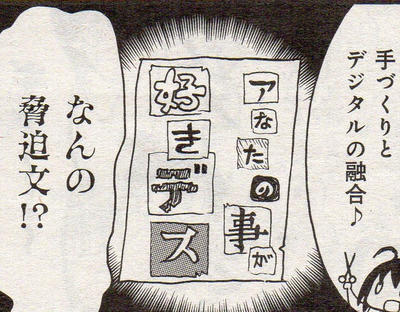 手づくりと
デジタルの融合♪
アなたの事が
好きデス
なんの
脅迫文!?